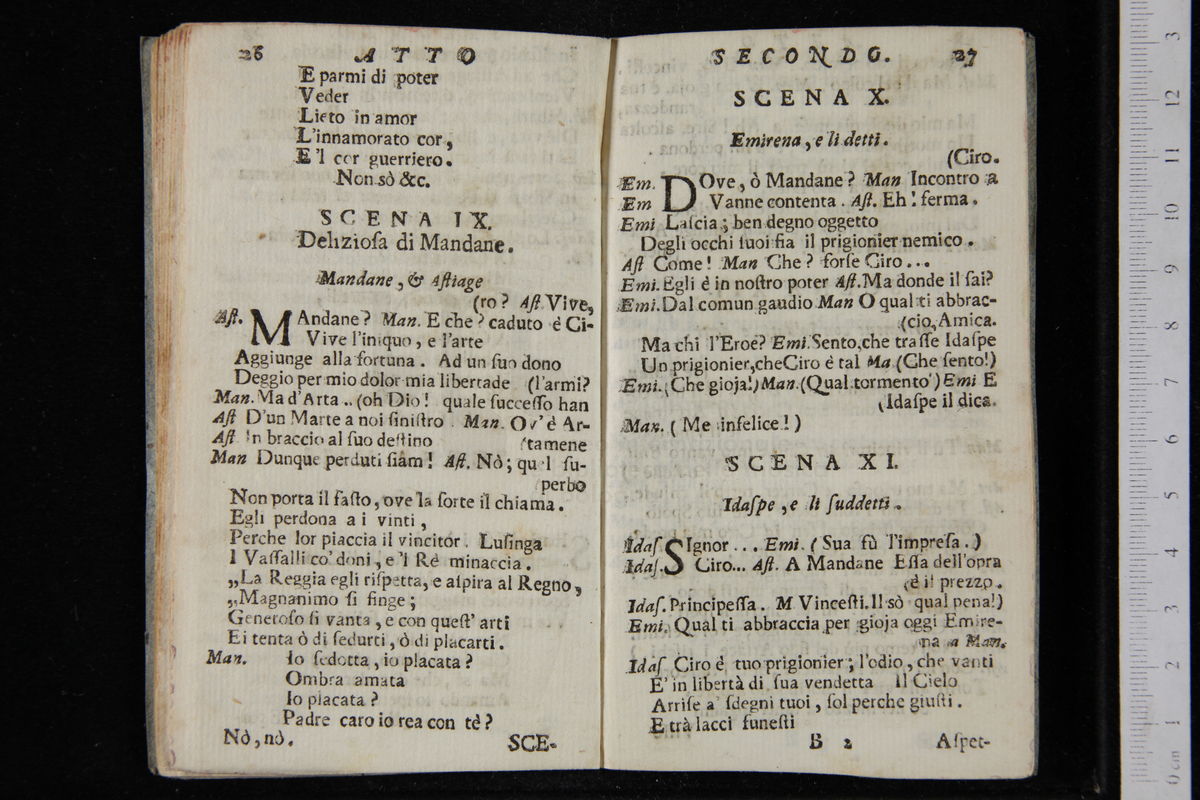 26 ATTO
E parmi di poter
Veder
Lieto in amor
L'innamorato cor,
E 'l cor guerriero.
Non sò &c.
SCENA IX.
Deliziosa di Mandane.
Mandane, & Aſtiage
(ro? Aſt. Vive,
Aſt. MAndane? Man. E che? caduto è Ci-
Vive l'iniquo, e l'arte
Aggiunge alla fortuna. Ad un ſuo dono
Deggio per mio dolor mia libertade (l'armi?
Man. Ma d'Arta .. (oh Dio! quale ſucceſſo han
Aſt D'un Marte a noi ſiniſtro. Man. Ov'è Ar-
Aſt. In braccio al ſuo deſtino (tamene
Man Dunque perduti ſiam! Aſt. Nò; quel ſu-
perbo
Non porta il faſto, ove la ſorte il chiama.
Egli perdona a i vinti,
Perche lor piaccia il vincitor. Luſinga
I Vaſſalli co' doni, e 'l Rè minaccia.
„La Reggia egli riſpetta, e aſpira al Regno,
„Magnanimo ſi finge;
Generoſo ſi vanta, e con queſt' arti
Ei tenta ò di ſedurti, ò di placarti.
Man. Io ſedotta, io placata?
Ombra amata
Io placata?
Padre caro io rea con tè?
Nò, nò. SCE-
SECONDO. 27
SCENA X.
Emirena, e li detti.
(Ciro.
Em. DOve, ò Mandane? Man Incontro a
Em Vanne contenta. Aſt. Eh! ferma.
Emi Laſcia; ben degno oggetto
Degli occhi ſuoi ſia il prigionier nemico.
Aſt Come! Man Che? forſe Ciro...
Emi. Egli è in noſtro poter Aſt. Ma donde il ſai?
Emi. Dal comun gaudio Man O qual ti abbrac-
(cio, Amica.
Ma chi l'Eroe? Emi. Sento, che traſſe Idaſpe
Un prigionier, che Ciro è tal Ma (Che ſento!)
Emi. (Che gioja!) Man. (Qual tormento) Emi E
(Idaſpe il dica.
Man. (Me infelice!)
SCENA XI.
Idaſpe, e li ſuddetti.
Idaſ. SIgnor... Emi. (Sua fù l'impreſa.)
Idaſ. Ciro... Aſt. A Mandane Eſſa dell'opra
(è il prezzo.
Idaſ. Principeſſa. M Vinceſti. Il sò qual pena!)
Emi. Qual ti abbraccia per gioja oggi Emire-
na a Man.
Idaſ Ciro è tuo prigionier; l'odio, che vanti
E' in libertà di ſua vendetta Il Cielo
Arriſe a' ſdegni tuoi, ſol perche giuſti.
E trà lacci funeſti
B 2 Aſpet-